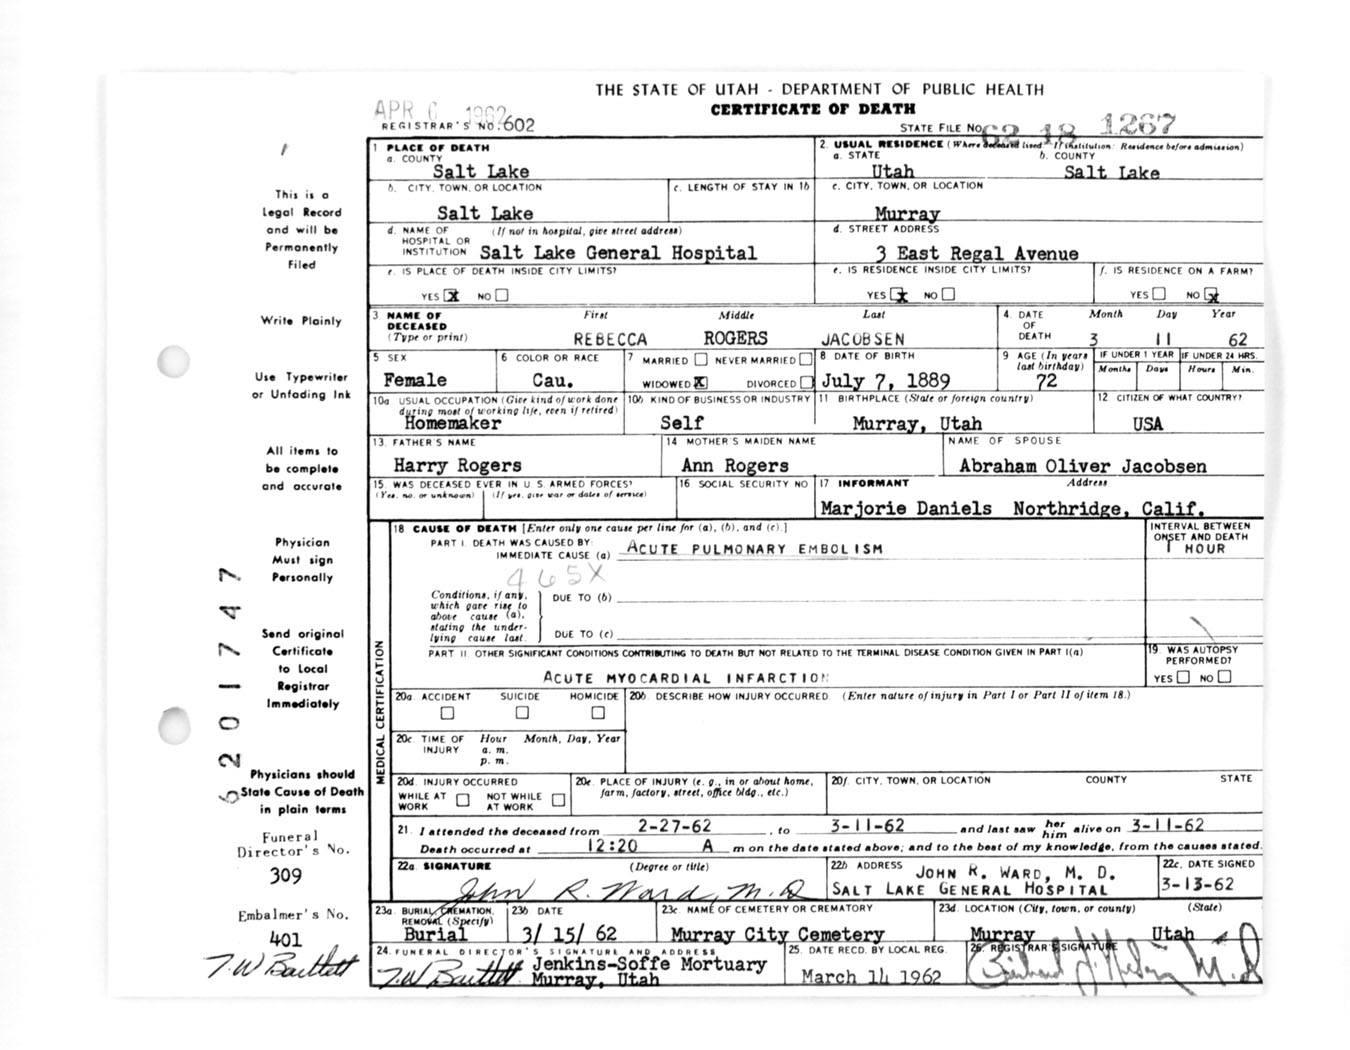 THE STATE OF UTAH - DEPARTMENT OF PUBLIC HEALTH
APR 6 1962
CERTIFICATE OF DEATH
REGISTRAR'S NO. 602
STATE FILE NO. 62 18 1267
1 PLACE OF DEATH
a. COUNTY
Salt Lake
2. USUAL RESIDENCE (Where deceased lived. If institution: Residence before admission)
a. STATE b. COUNTY
Utah Salt Lake
b. CITY, TOWN, OR LOCATION
Salt Lake
c. LENGTH OF STAY IN 1b
c. CITY, TOWN, OR LOCATION
Murray
d. NAME OF HOSPITAL OR INSTITUTION (If not in hospital, give street address)
Salt Lake General Hospital
d. STREET ADDRESS
3 East Regal Avenue
e. IS PLACE OF DEATH INSIDE CITY LIMITS?
YES X NO
e. IS RESIDENCE INSIDE CITY LIMITS?
YES X NO
f. IS RESIDENCE ON A FARM?
YES NO X
3 NAME OF DECEASED (Type or print)
First Middle Last
REBECCA ROGERS JACOBSEN
4. DATE OF DEATH
Month Day Year
3 11 62
5 SEX
Female
6 COLOR OR RACE
Cau.
7 MARRIED NEVER MARRIED
WIDOWED X DIVORCED
8 DATE OF BIRTH
July 7, 1889
9 AGE (In years last birthday)
72
IF UNDER 1 YEAR
Months Days
IF UNDER 24 HRS.
Hours Min.
10a USUAL OCCUPATION (Give kind of work done during most of working life, even if retired)
Homemaker
10b KIND OF BUSINESS OR INDUSTRY
Self
11 BIRTHPLACE (State or foreign country)
Murray, Utah
12 CITIZEN OF WHAT COUNTRY?
USA
13. FATHER'S NAME
Harry Rogers
14 MOTHER'S MAIDEN NAME
Ann Rogers
NAME OF SPOUSE
Abraham Oliver Jacobsen
15. WAS DECEASED EVER IN U.S. ARMED FORCES?
(Yes, no, or unknown) (If yes, give war or dates of service)
16 SOCIAL SECURITY NO
17 INFORMANT Address
Marjorie Daniels Northridge, Calif.
MEDICAL CERTIFICATION
18 CAUSE OF DEATH [Enter only one cause per line for (a), (b), and (c).]
PART I. DEATH WAS CAUSED BY:
IMMEDIATE CAUSE (a) ACUTE PULMONARY EMBOLISM
INTERVAL BETWEEN ONSET AND DEATH
1 HOUR
465X
Conditions, if any, which gave rise to above cause (a), stating the underlying cause last.
DUE TO (b)
DUE TO (c)
PART II. OTHER SIGNIFICANT CONDITIONS CONTRIBUTING TO DEATH BUT NOT RELATED TO THE TERMINAL DISEASE CONDITION GIVEN IN PART I(a)
ACUTE MYOCARDIAL INFARCTION
19. WAS AUTOPSY PERFORMED?
YES NO
20a. ACCIDENT SUICIDE HOMICIDE
20b. DESCRIBE HOW INJURY OCCURRED. (Enter nature of injury in Part I or Part II of item 18.)
20c. TIME OF INJURY Hour Month, Day, Year
a. m.
p. m.
20d. INJURY OCCURRED
WHILE AT WORK NOT WHILE AT WORK
20e. PLACE OF INJURY (e. g., in or about home, farm, factory, street, office bldg., etc.)
20f. CITY, TOWN, OR LOCATION COUNTY STATE
21. I attended the deceased from 2-27-62, to 3-11-62 and last saw her him alive on 3-11-62
Death occurred at 12:20 A m on the date stated above; and to the best of my knowledge, from the causes stated.
22a. SIGNATURE (Degree or title)
John R. Ward, M.D
22b ADDRESS JOHN R. WARD, M. D.
SALT LAKE GENERAL HOSPITAL
22c. DATE SIGNED
3-13-62
23a. BURIAL, CREMATION, REMOVAL (Specify)
Burial
23b DATE
3/ 15/ 62
23c. NAME OF CEMETERY OR CREMATORY
Murray City Cemetery
23d. LOCATION (City, town, or county) (State)
Murray Utah
24. FUNERAL DIRECTOR'S SIGNATURE AND ADDRESS
T.W Bartlett Jenkins-Soffe Mortuary
Murray, Utah
25. DATE RECD. BY LOCAL REG.
March 14 1962
26. REGISTRAR'S SIGNATURE
This is a
Legal Record
and will be
Permanently
Filed
Write Plainly
Use Typewriter
or Unfading Ink
All items to
be complete
and accurate
Physician
Must sign
Personally
Send original
Certificate
to Local
Registrar
Immediately
Physicians should
State Cause of Death
in plain terms
6201747
Funeral
Director's No.
309
Embalmer's No.
401
T.W Bartlett